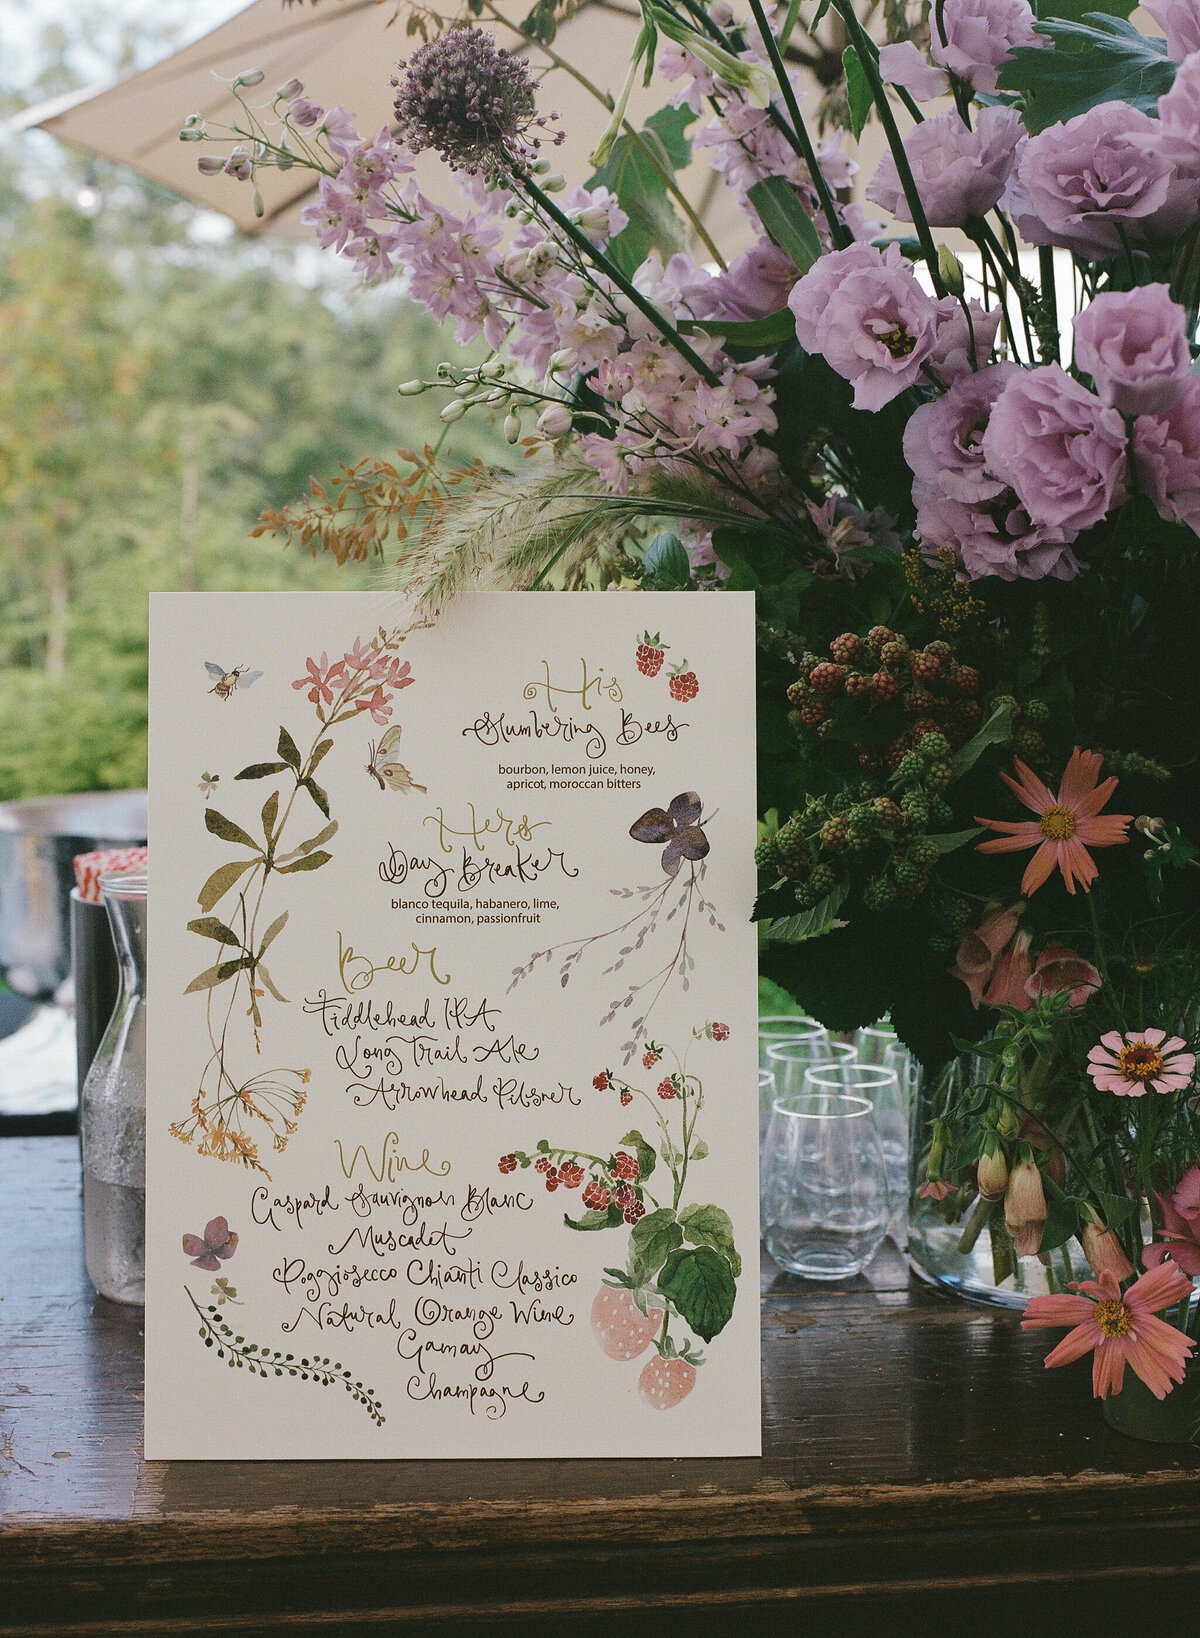 His
Slumbering Bees
bourbon, lemon juice, honey,
apricot, moroccan bitters
Hers
Day Breaker
blanco tequila, habanero, lime,
cinnamon, passionfruit
Beer
Fiddlehead IPA
Long Trail Ale
Arrowhead Pilsner
Wine
Gaspard Sauvignon Blanc
Muscadet
Poggiosecco Chianti Classico
Natural Orange Wine
Gamay
Champagne